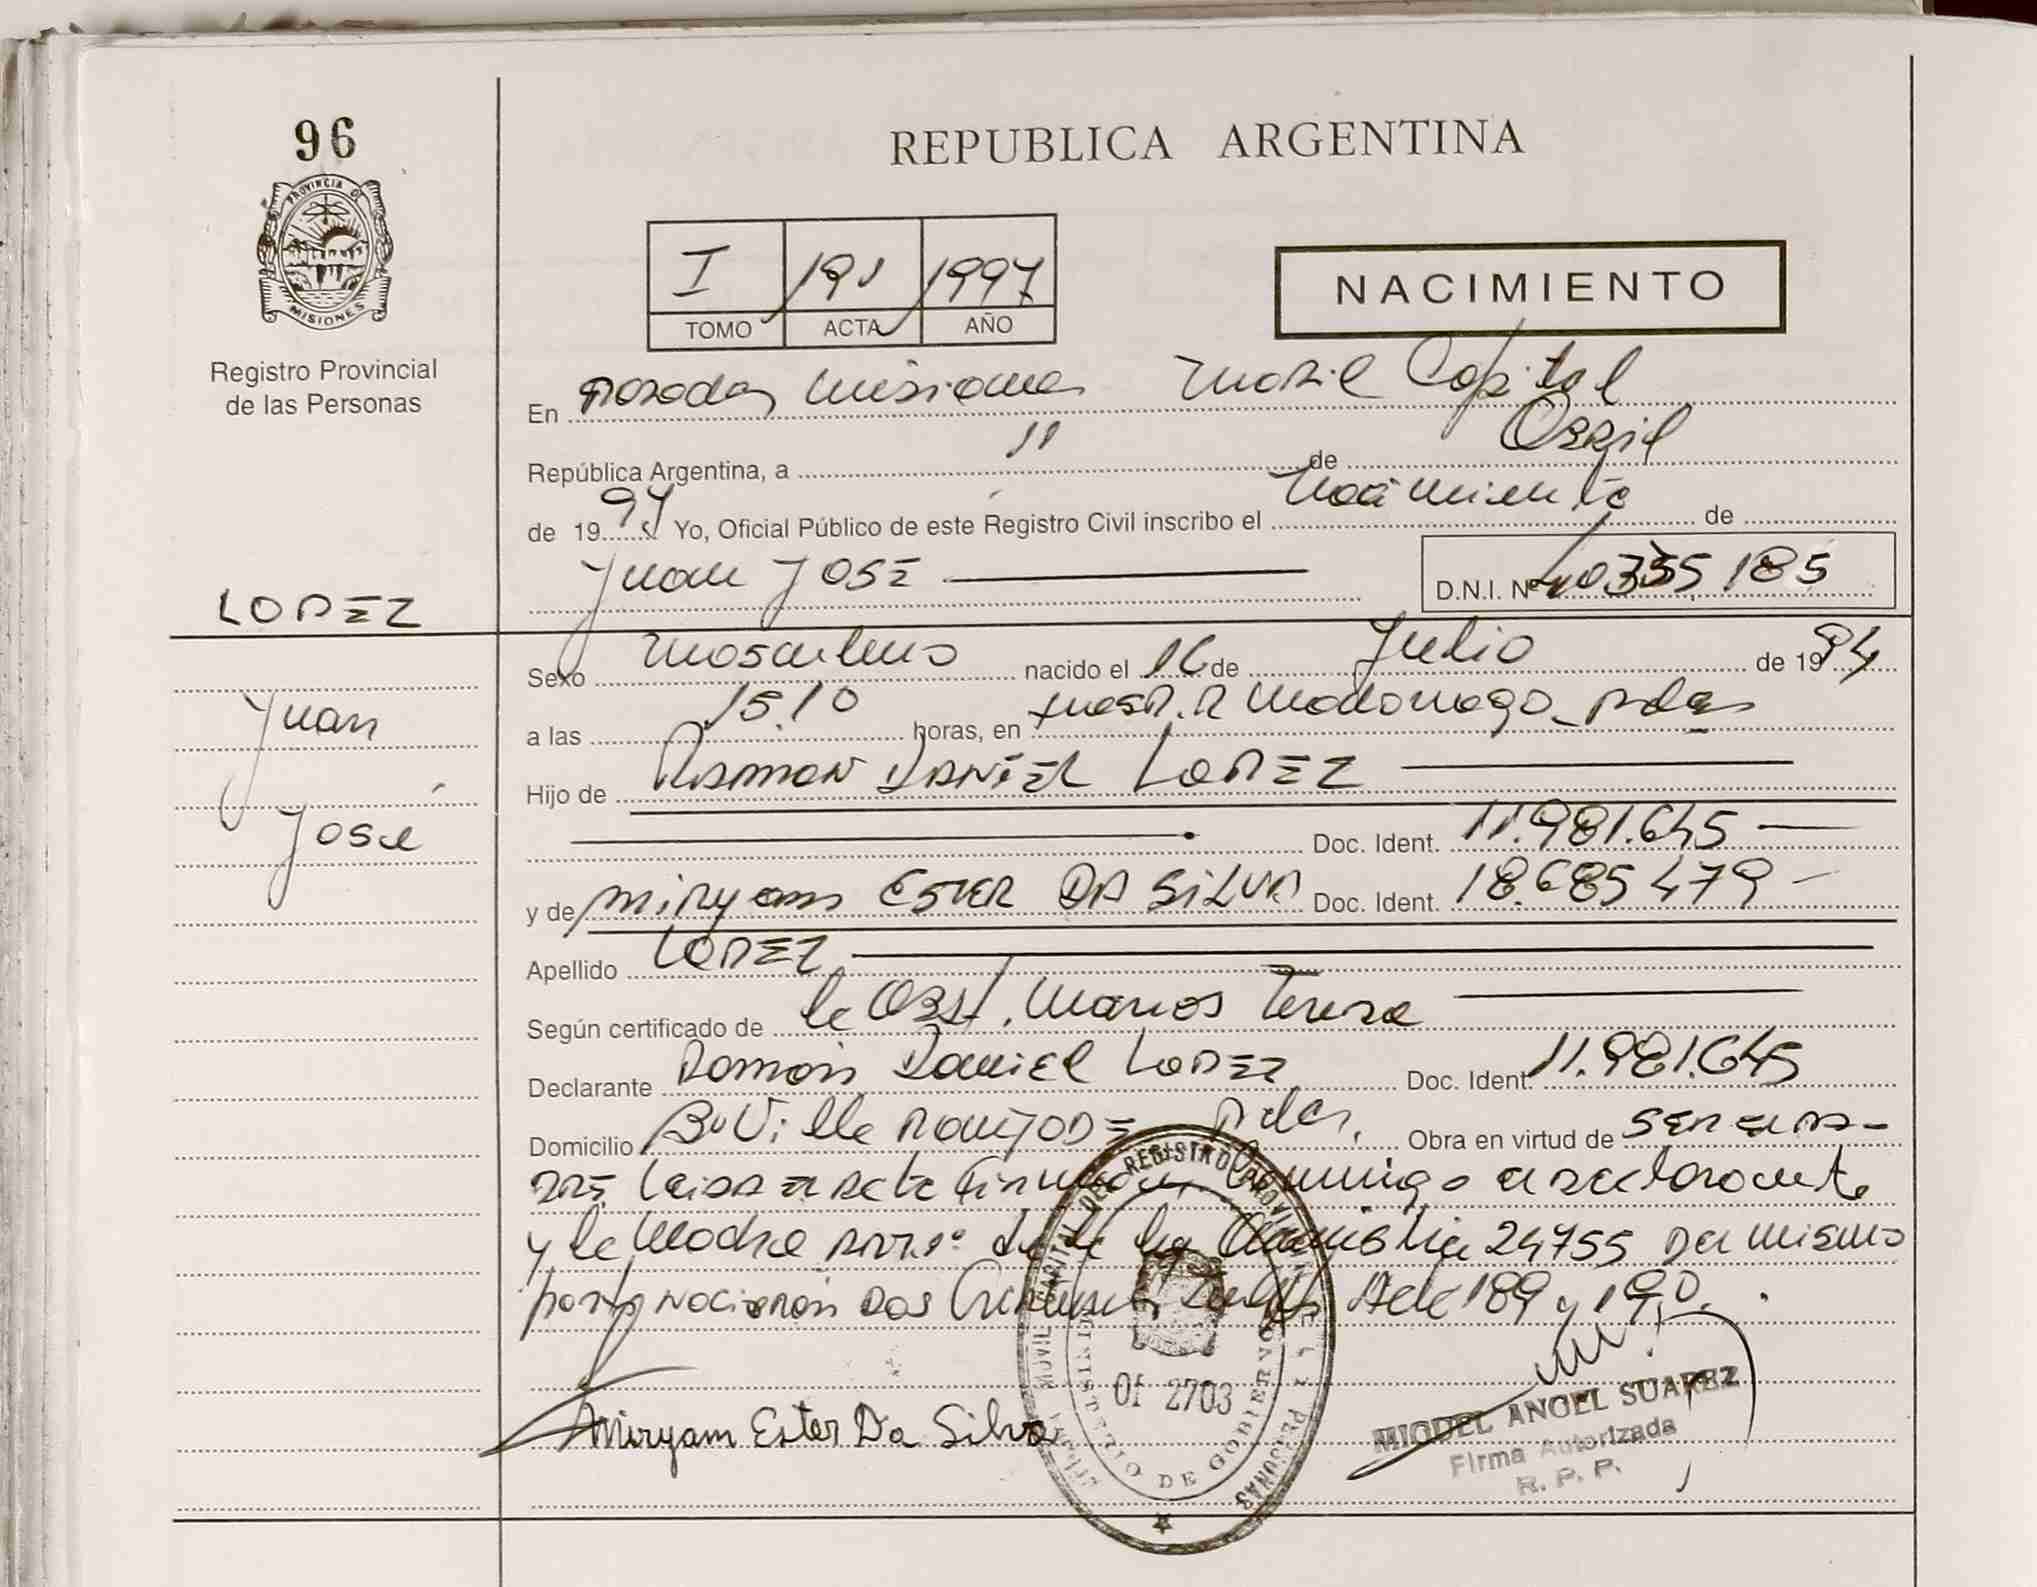 96
PROVINCIA DE
MISIONES
Registro Provincial
de las Personas
LOPEZ
Juan
José
REPUBLICA ARGENTINA
I 191 1997
TOMO ACTA AÑO
NACIMIENTO
En Posadas Misiones Movil Capital
República Argentina, a 11 de Abril
de 1997 Yo, Oficial Público de este Registro Civil inscribo el Nacimiento de
Juan JOSE D.N.I. Nº 40335185
Sexo Masculino nacido el 16 de Julio de 1994
a las 15.10 horas, en Madariaga - Pdas
Hijo de RAMON DANIEL LOPEZ
Doc. Ident. 11.981.645
y de MIRyam ESTER DA SILVA Doc. Ident. 18.685479
Apellido LOPEZ
Según certificado de la Obst. Marcos Teresa
Declarante Ramón Daniel LOPEZ Doc. Ident. 11.981.645
Domicilio Bº Villa Pdas. Obra en virtud de
Leida el Acta Firman Conmigo el declarante
y la Madre de la ley Amnistia 24755 del mismo
parto nacieron dos Acta 189 y 190.
MOVIL CAPITAL DEL REGISTRO PROVINCIAL DE LAS PERSONAS
MINISTERIO DE GOBIERNO
Of 2703
Miryam Ester Da Silva
MIGUEL ANGEL SUAREZ
Firma Autorizada
R. P. P.